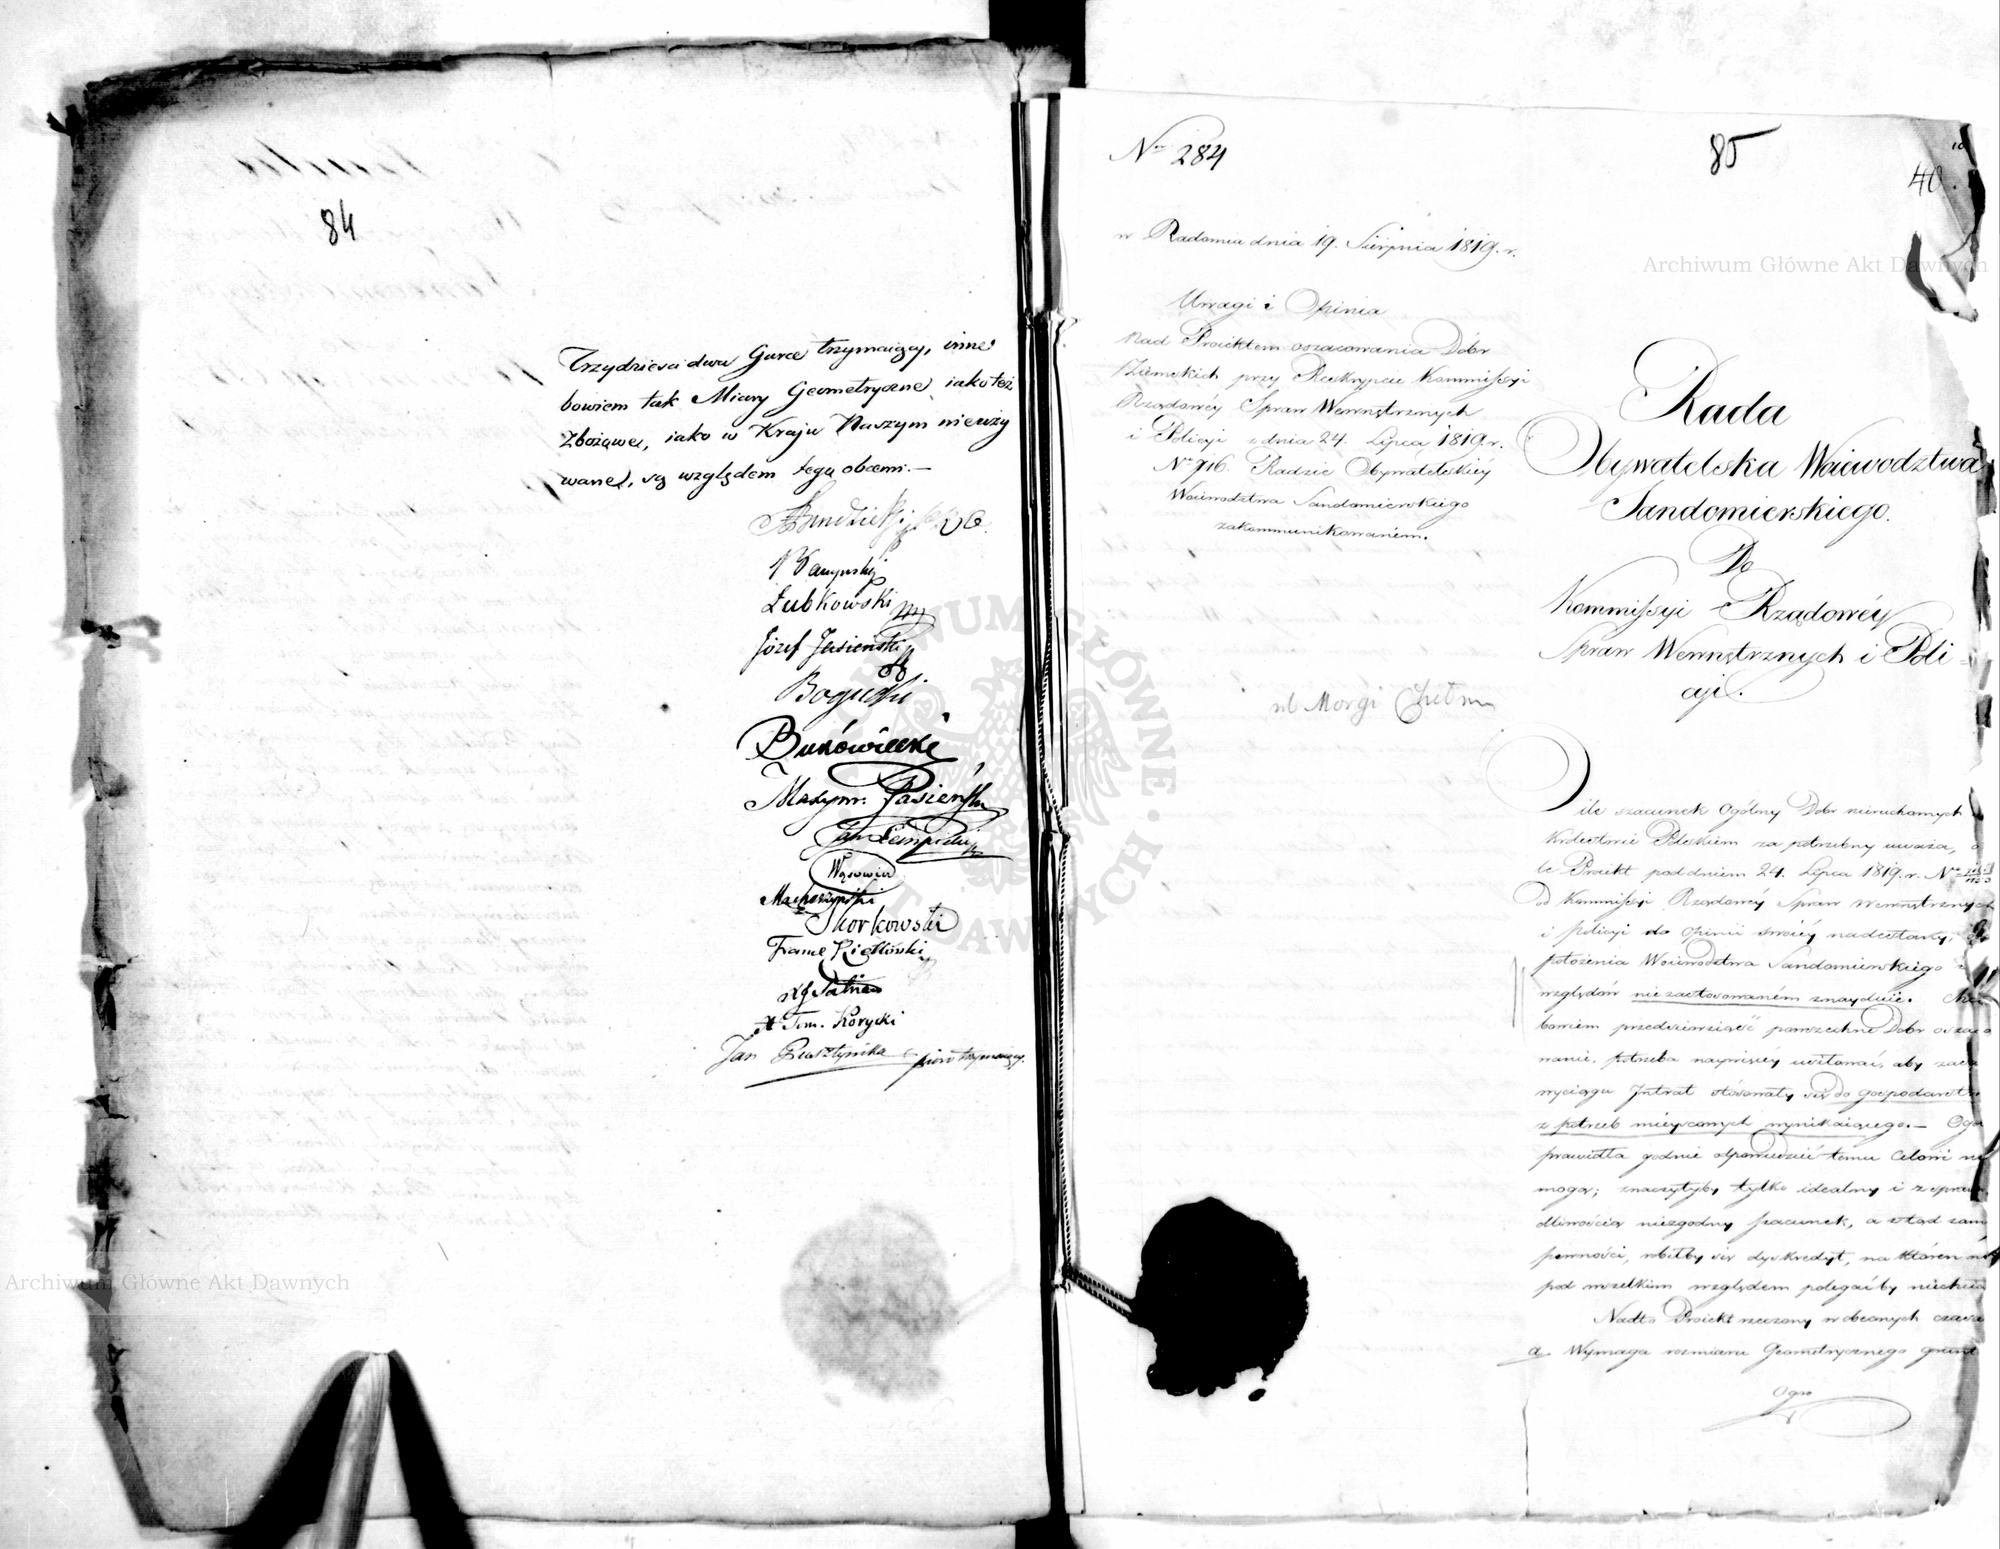 84
Trzydzieści dwa Garce trzymaiący, inne
bowiem tak Miary Geometryczne, iako też
Zbożowe, iako w Kraju Naszym nieuży
wane, są względem tego obcemi.—
Łubkowski
Józef Jasieński
Bogucki
Bukowiecki
Jan Łempicki
Wąsowicz
Skorkowski
Tom. Korycki
Jan
Nro 284
85
10
40.
w Radomiu dnia 19. Sierpnia 1819. r.
Uwagi i Opinia
Nad Proiektem oszacowania Dóbr
Ziemskich przy Reskrypcie Kommissyi
Rządowéy Spraw Wewnętrznych
i Policyi z dnia 24. Lipca 1819. r.
Radzie Obywatelskiéy
Woiewodztwa Sandomierskiego
zakommunikowaném.
Rada
Obywatelska Woiewodztwa
Sandomierskiego.
Do
Kommissyi Rządowéy
Spraw Wewnętrznych i Poli-
cyi.
ile szacunek Ogólny Dóbr nieruchomych
Królestwie Polskiem za potrzebny uważa, o
le Proiekt pod dniem 24. Lipca 1819. r. Nro
od Kommissyi Rządowéy Spraw Wewnętrznych
i policyi do Opinii swoiéy nadesłany,
położenia Woiewodztwa Sandomierskiego z
względów niezastosowaném znayduie.
bowiem przedsięwziąść powszechne Dóbr osza
wanie, potrzeba naypierwéy
wyciągu Intrat stósowały się do gospodarst
z potrzeb mieyscowych wynikaiącego.— Ogó
prawidła godnie odpowiedzieć temu Celowi nie
mogą; znaczyłyby tylko idealny i z spraw
dliwością niezgodny szacunek, a ztąd zam
pewności, robiłby się dyskredyt, na którén
pod wszelkim względem polegaćby niechcia
Nadto Proiekt rzeczony w obecnych czasa
a Wymaga rozmiaru Geometrycznego grunt
Ogro
Archiwum Główne Akt Dawnych
Archiwum Główne Akt Dawnych
ARCHIWUM GŁÓWNE AKT DAWNYCH